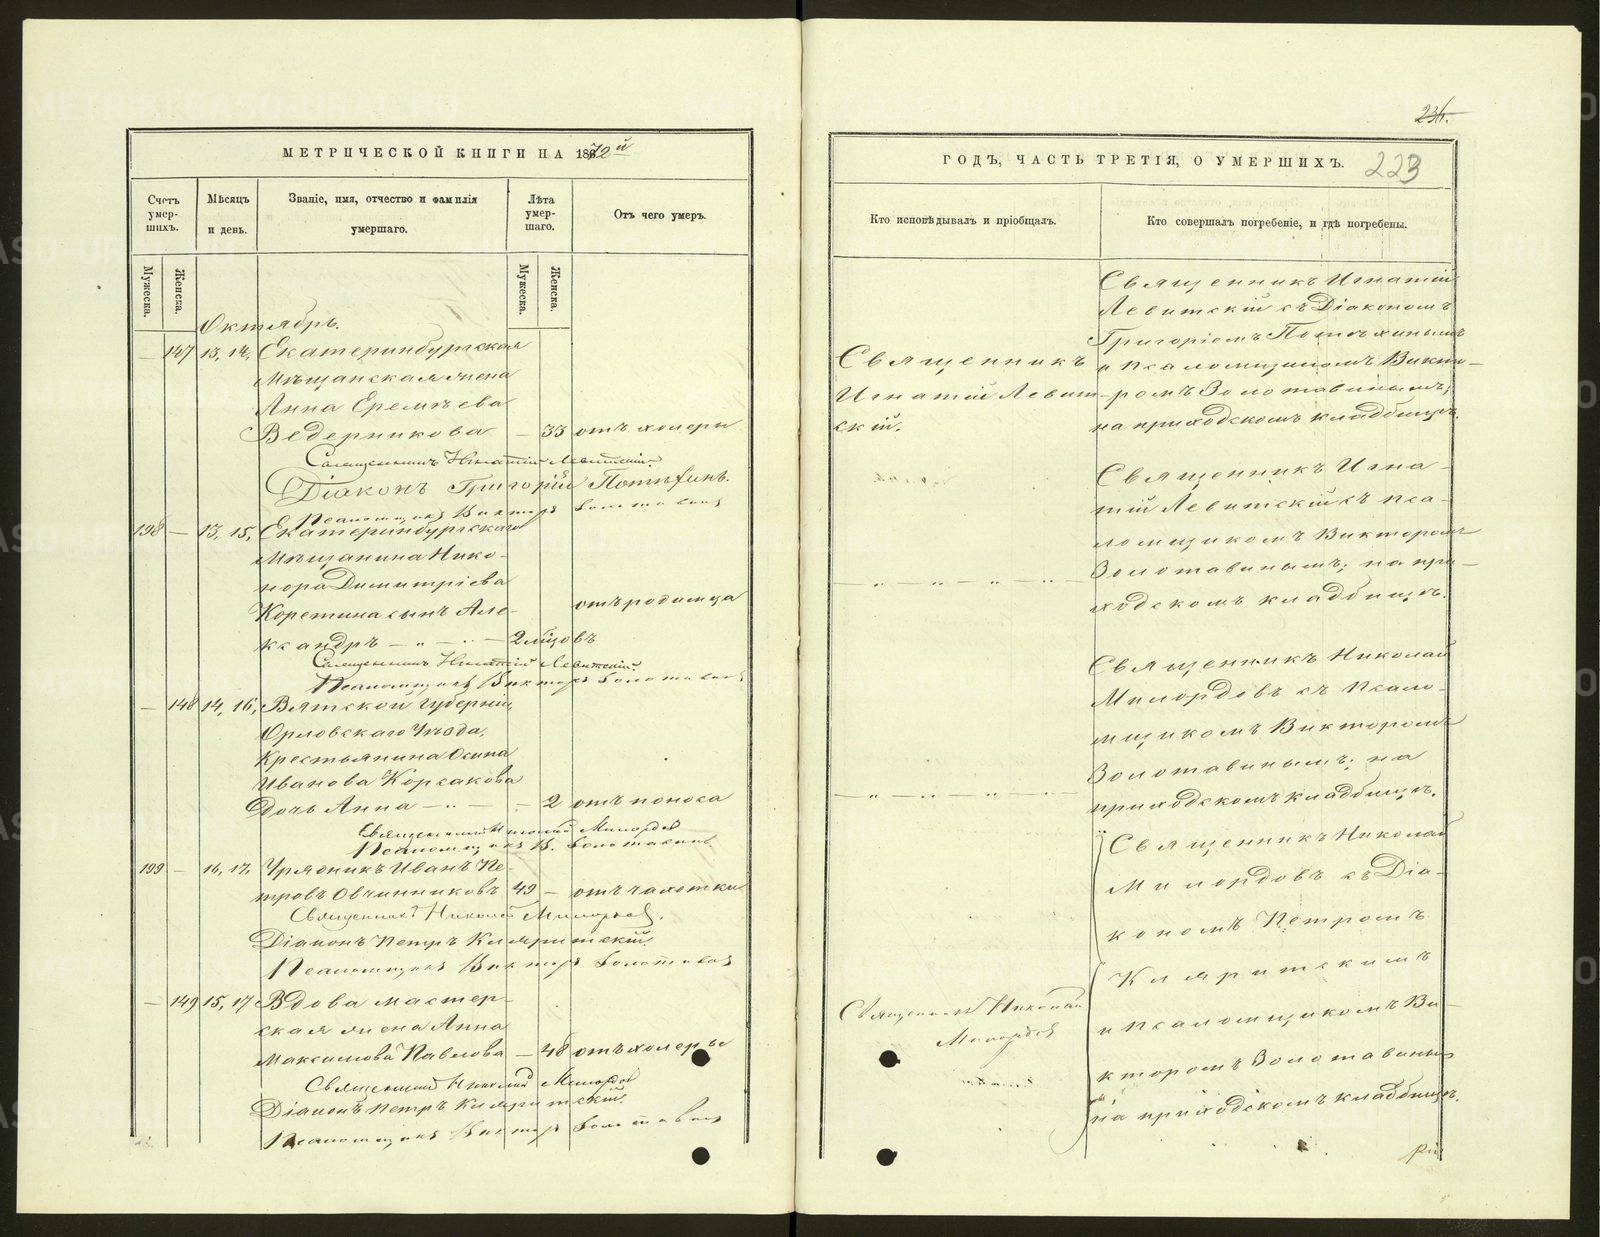 МЕТРИЧЕСКОЙ КНИГИ НА 1872й
Счетъ умер-шихъ.
Мѣсяцъ и день.
Званіе, имя, отчество и фамилія умершаго.
Лѣта умер-шаго.
Отъ чего умеръ.
Мужеска.
Женска.
Мужеска.
Женска.
Октябрь.
— 147 13, 14, Екатеринбургская
Мѣщанская жена
Анна Еремѣева
Ведерникова — 33 отъ холеры
Священникъ Игнатій Левитскій.
Діаконъ Григорій Потѣхинъ.
Псаломщикъ Викторъ Золотавинъ
198 — 13, 15, Екатеринбургскаго
Мѣщанина Нико-
нора Димитріева
Коретина сынъ Але- отъ родимца
ксандръ — „ — „ — 2 мѣсцовъ
Священникъ Игнатій Левитскій.
Псаломщикъ Викторъ Золотавинъ
— 148 14, 16, Вятской губерніи,
Орловскаго Уѣзда,
Крестьянина Осипа
Иванова Корсакова
Дочь Анна — „ — — 2 отъ поноса
Священникъ Николай Милордовъ
Псаломщикъ В. Золотавинъ
199 — 16, 17, Урядникъ Иванъ Пе-
тровъ Овчинниковъ 49 — отъ чахотки
Священникъ Николай Милордовъ.
Діаконъ Петръ Кляритскій.
Псаломщикъ Викторъ Золотавинъ
— 149 15, 17 Вдова мастер-
ская жена Анна
Максимова Павлова — 48 отъ холеры
Священникъ Николай Милордовъ
Діаконъ Петръ Кляритскій.
Псаломщикъ Викторъ Золотавинъ
236.
ГОДЪ, ЧАСТЬ ТРЕТІЯ, О УМЕРШИХЪ.
223
Кто исповѣдывалъ и пріобщалъ.
Кто совершалъ погребеніе, и гдѣ погребены.
Священникъ
Игнатій Левит-
скій.
Священникъ Игнатій
Левитскій съ Діакономъ
Григоріемъ Потѣхинымъ
и Псаломщикомъ Викто-
ромъ Золотавинымъ;
на приходскомъ кладбищѣ.
— „ — „ — „ — „ —
Священникъ Игна-
тій Левитскій съ Пса-
ломщикомъ Викторомъ
Золотавинымъ; на при-
ходскомъ кладбищѣ.
— „ — „ — „ — „ —
Священникъ Николай
Милордовъ съ Псало-
мщикомъ Викторомъ
Золотавинымъ; на
приходскомъ кладбищѣ.
Священникъ Николай
Милордовъ
Священникъ Николай
Милордовъ съ Діа-
кономъ Петромъ
Кляритскимъ
и Псаломщикомъ Ви-
кторомъ Золотавинымъ
на приходскомъ кладбищѣ.
METRIKI.GASO-URAL.RU